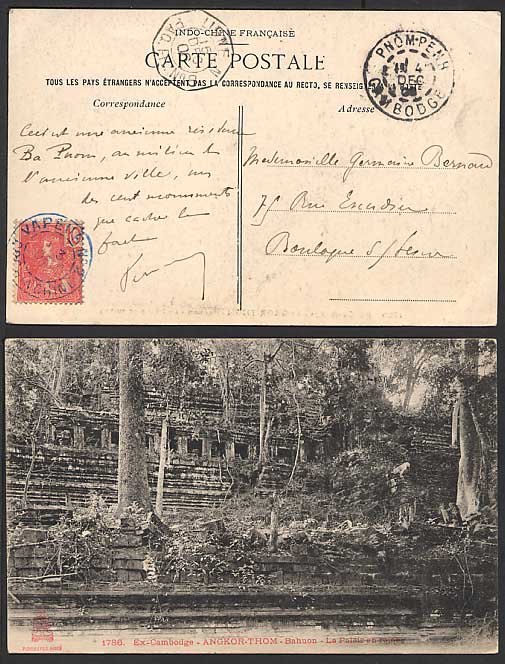 INDO-CHINE FRANÇAISE
CARTE POSTALE
TOUS LES PAYS ÉTRANGERS N'ACCEPTENT PAS LA CORRESPONDANCE AU RECTO, SE RENSEIGNER À LA POSTE
Correspondance
Adresse
PNOM-PENH
4
DEC
CAMBODGE
Ceci est une ancienne
Ba Pnom, au milieu de
l'ancienne ville, un
des cent monuments
que cache la
forêt
Mademoiselle Germaine Bernard
75 Rue Escudier
Boulogne s/Seine
1786. Ex-Cambodge - ANGKOR-THOM - Bahuon - Le Palais en ruines